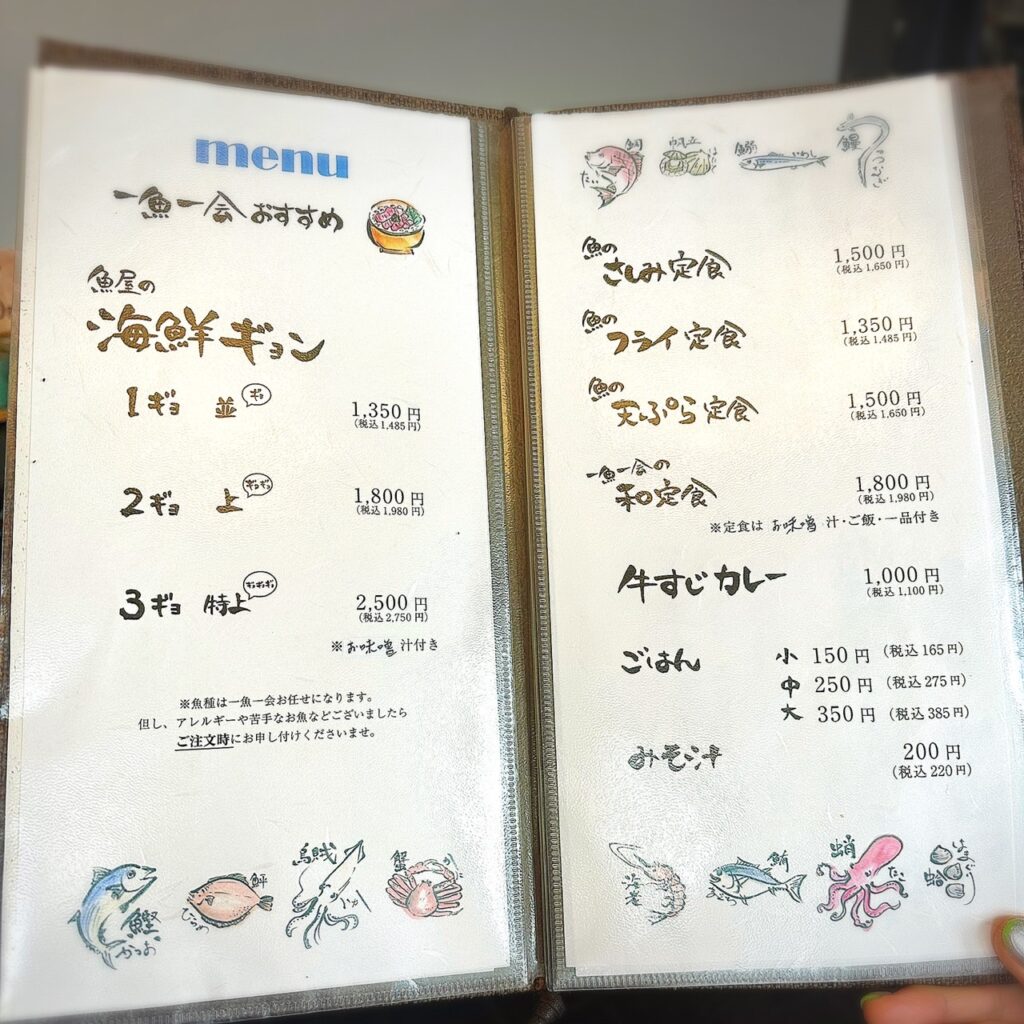 menu
一魚一会おすすめ
魚屋の
海鮮ギョン
1ギョ 並 ギョ
1,350円
(税込1,485円)
2ギョ 上 ギョギョ
1,800円
(税込1,980円)
3ギョ 特上 ギョギョギョ
2,500円
(税込2,750円)
※お味噌汁付き
※魚種は一魚一会お任せになります。
但し、アレルギーや苦手なお魚などございましたら
ご注文時にお申し付けくださいませ。
鰹 かつお
鮃 ひらめ
烏賊 いか
蟹 かに
鯛 たい
帆立 ほたて
鰯 いわし
鰻 うなぎ
魚の
さしみ定食
1,500円
(税込1,650円)
魚の
フライ定食
1,350円
(税込1,485円)
魚の
天ぷら定食
1,500円
(税込1,650円)
一魚一会の
和定食
1,800円
(税込1,980円)
※定食は お味噌 汁・ご飯・一品付き
牛すじカレー
1,000円
(税込1,100円)
ごはん
小 150円 (税込165円)
中 250円 (税込275円)
大 350円 (税込385円)
みそ汁
200円
(税込220円)
海老
鮪
蛸 たこ
蛤 はまぐり